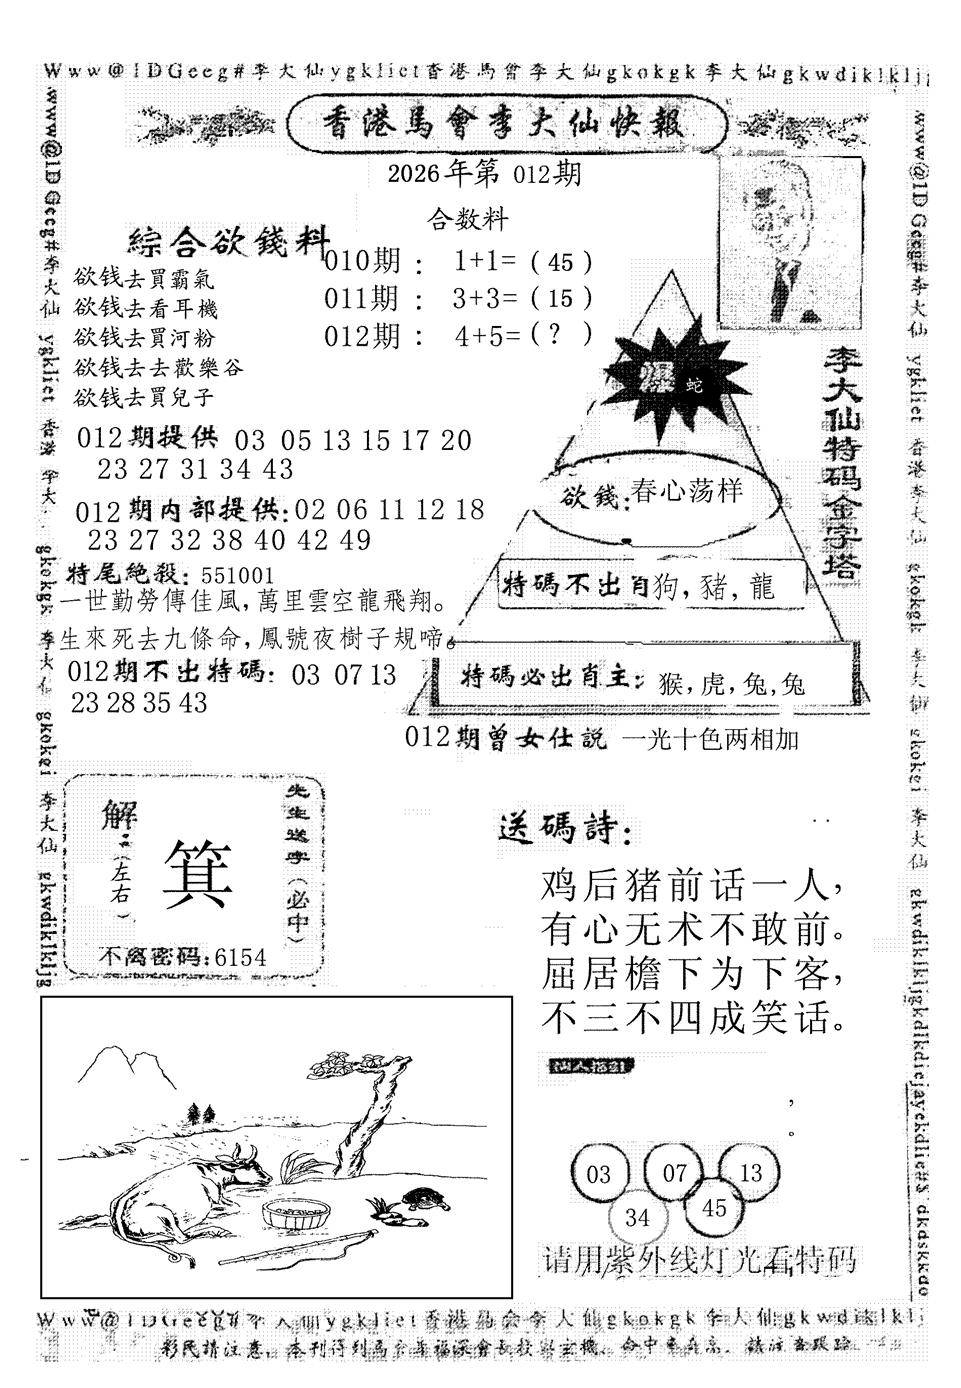 Www@1DGeeg#李大仙ygkliet香港馬會李大仙gkokgk李大仙gkwdiklkljg
香港馬會李大仙快報
2026年第 012期
合数料
綜合欲錢料
010期： 1+1=（45）
011期： 3+3=（15）
012期： 4+5=（?）
欲钱去買霸氣
欲钱去看耳機
欲钱去買河粉
欲钱去去歡樂谷
欲钱去買兒子
012期提供 03 05 13 15 17 20
23 27 31 34 43
012期内部提供:02 06 11 12 18
23 27 32 38 40 42 49
特尾絶殺: 551001
一世勤勞傳佳風,萬里雲空龍飛翔。
生來死去九條命,鳳號夜樹子規啼。
012期不出特碼: 03 07 13
23 28 35 43
李大仙特码金字塔
爆 蛇
欲錢:春心荡样
特碼不出肖狗,豬,龍
特碼必出肖主: 猴,虎,兔,兔
012期曾女仕説 一光十色两相加
先生送字(必中)
解:(左右)
箕
不离密码:6154
送碼詩:
鸡后猪前话一人,
有心无术不敢前。
屈居檐下为下客,
不三不四成笑话。
,
。
03 07 13
34 45
请用紫外线灯光看特码
www@1DGeeg#李大仙 ygkliet 香港 李大 gkokgk 李大仙 gkokei 李大仙 gkwdiklkljg
www@1DGeeg#李大仙 ygkliet 香港李大仙 gkokgk 李大仙 gkokei 李大仙 gkwdiklkljgkdlkdiejayekdlie#$ dkdskkdo
李大仙ygkliet香港馬会李大仙gkokgk李大仙gkwdiklklj
彩民請注意,本刊得到馬